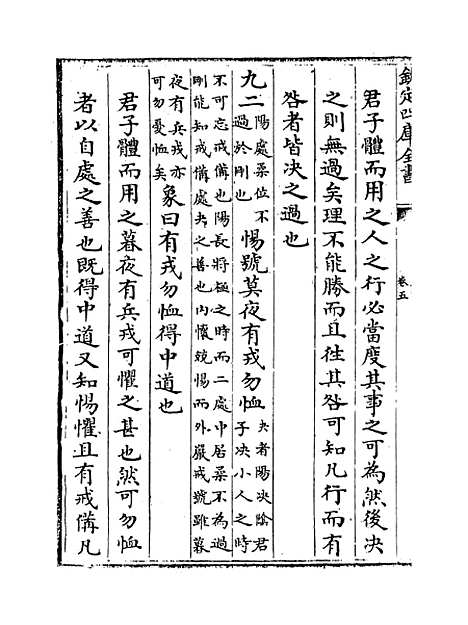 欽定四庫全書
卷五
君子體而用之人之行必當度其事之可為然後决
之則無過矣理不能勝而且往其咎可知凡行而有
咎者皆决之過也
九二陽處柔位不過於剛也惕號莫夜有戎勿恤夬者陽决陰君子决小人之時
不可忘戒備也陽長將極之時而二處中居柔不為過
剛能知戒備處夬之善也内懷兢惕而外嚴戒號雖暮
夜有兵戎亦可勿憂恤矣象曰有戎勿恤得中道也
君子體而用之暮夜有兵戎可懼之甚也然可勿恤
者以自處之善也既得中道又知惕懼且有戒備凡